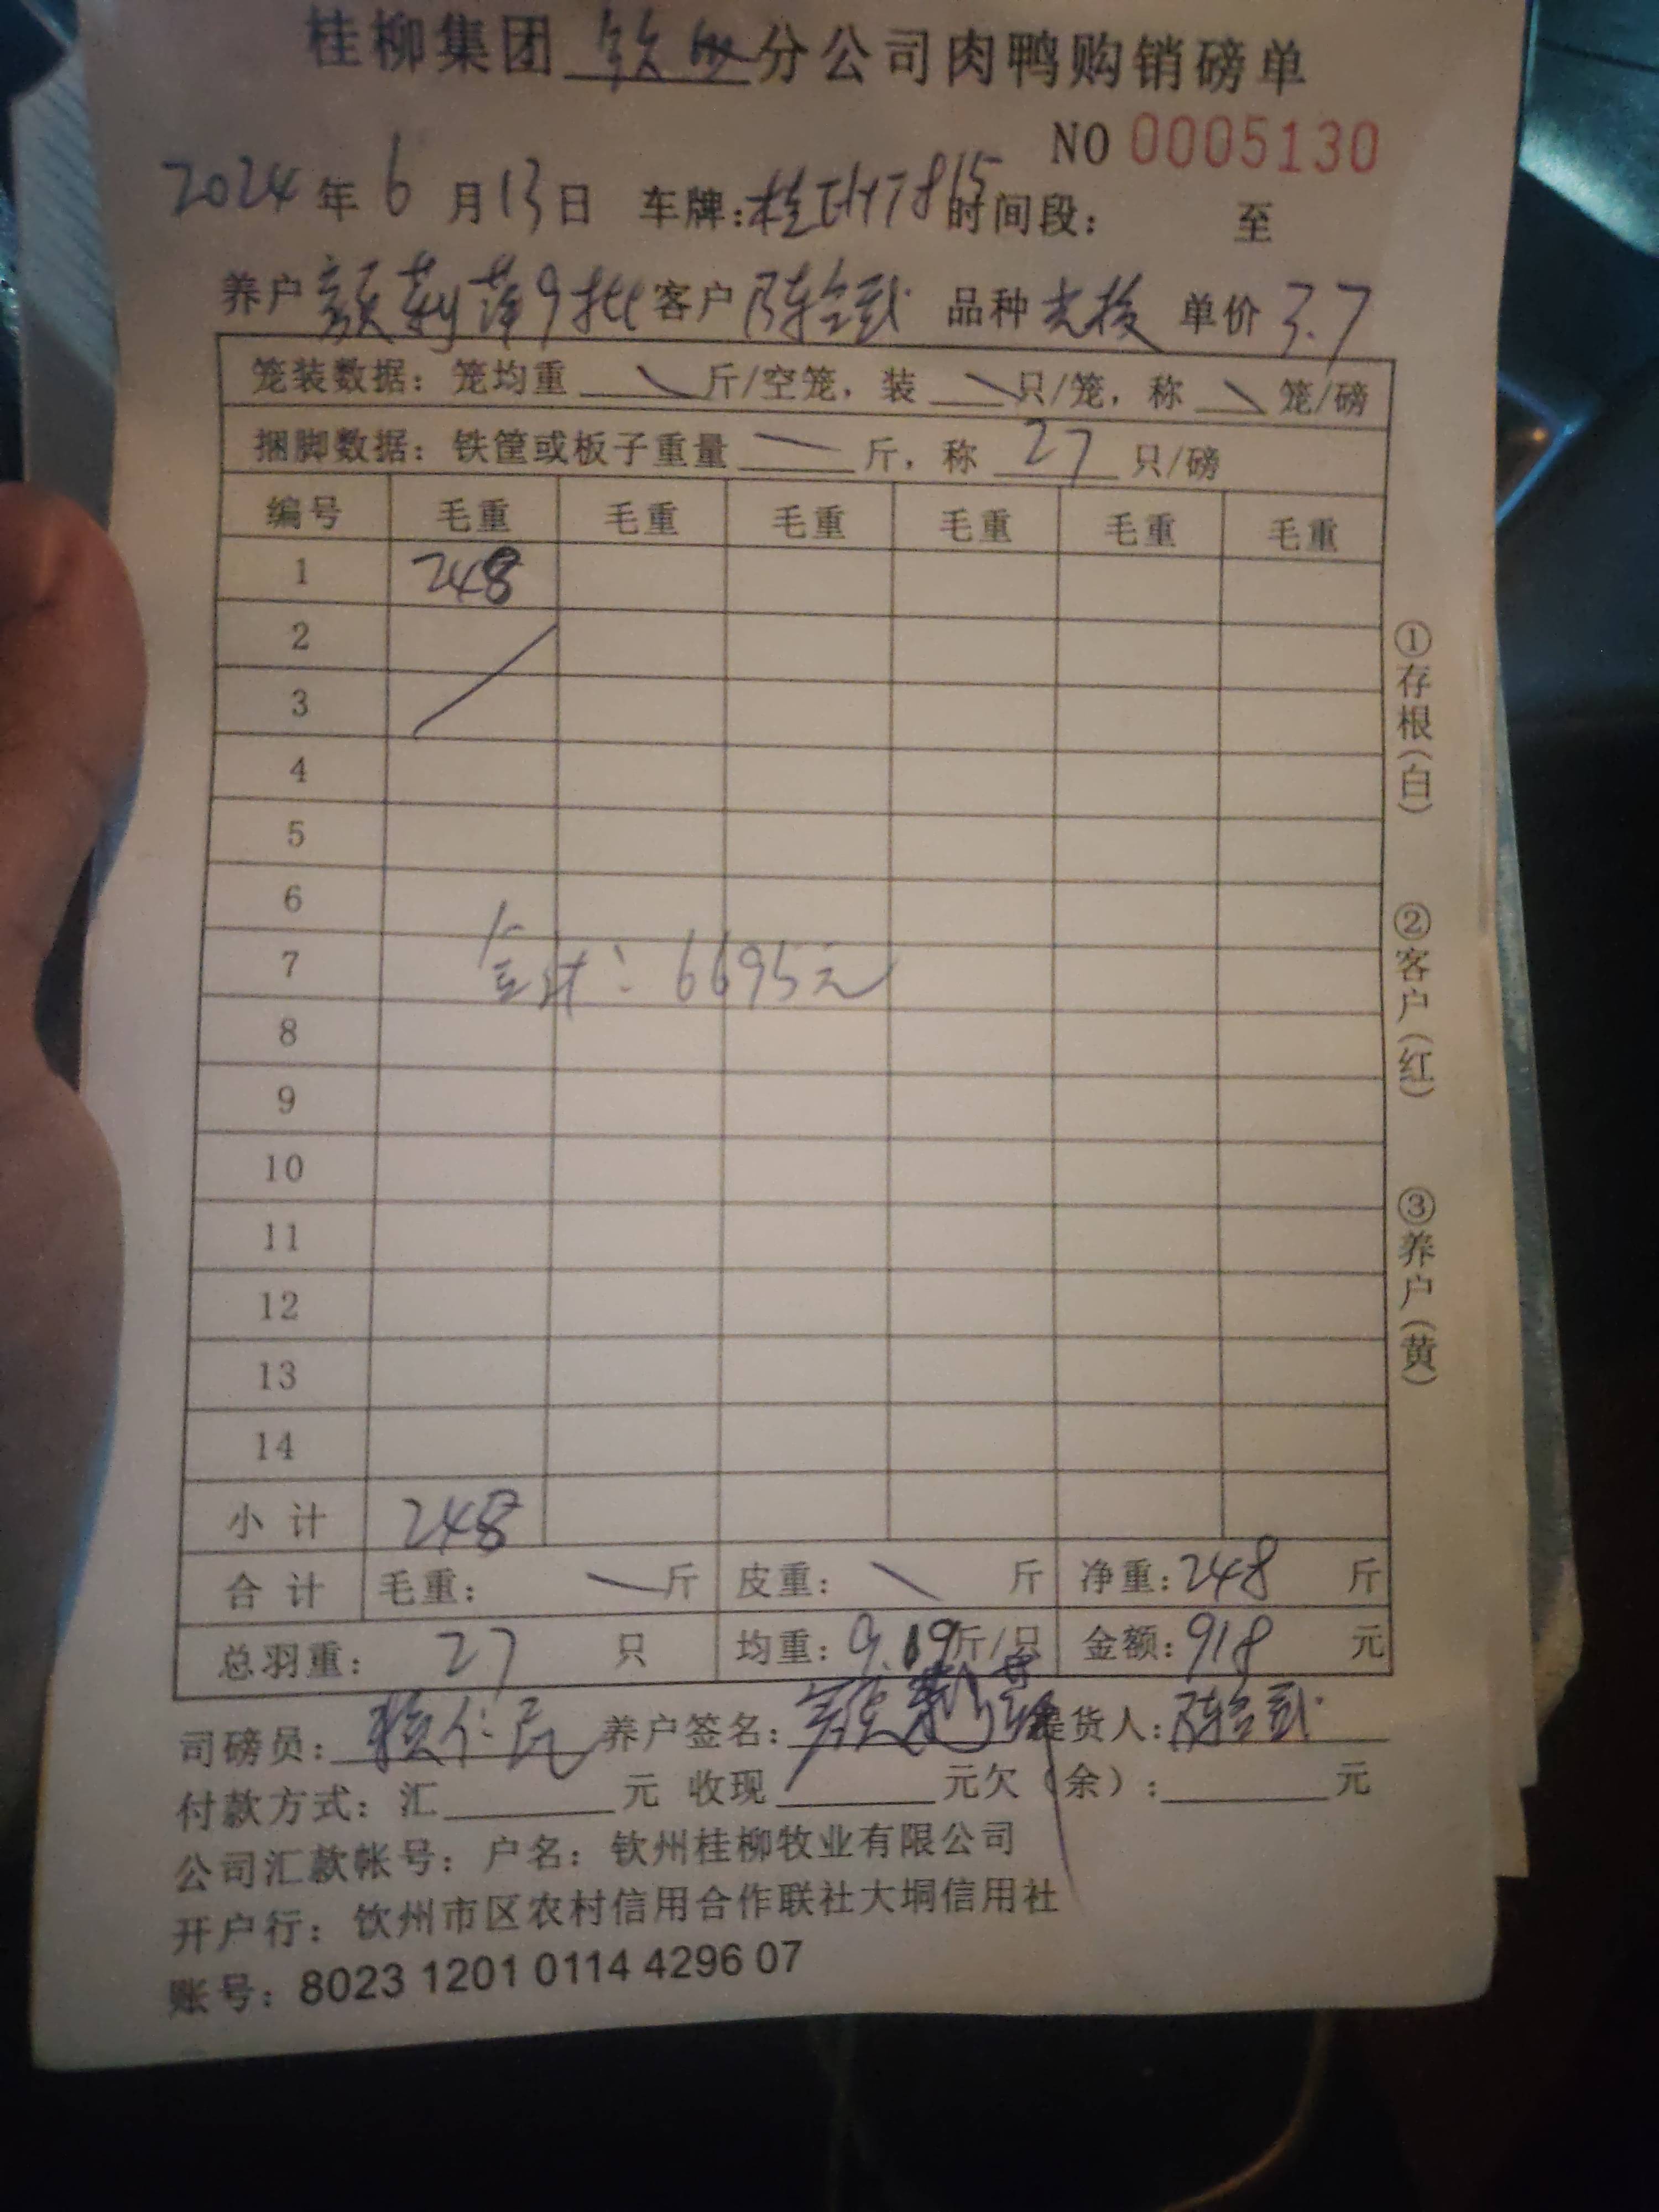 桂柳集团 钦州 分公司肉鸭购销磅单
NO 0005130
2024 年 6 月 13 日 车牌: 时间段: 至
养户 颜莉萍9批 客户 品种 单价 3.7
笼装数据: 笼均重 斤/空笼, 装 只/笼, 称 笼/磅
捆脚数据: 铁筐或板子重量 斤, 称 27 只/磅
编号 毛重 毛重 毛重 毛重 毛重 毛重
1 248
2
3
4
5
6
7
合计: 6695元
8
9
10
11
12
13
14
小计 248
合计 毛重: 斤 皮重: 斤 净重: 248 斤
总羽重: 27 只 均重: 9.19 斤/只 金额: 918 元
司磅员: 养户签名: 颜莉萍 提货人:
付款方式: 汇 元 收现 元欠(余): 元
公司汇款帐号: 户名: 钦州桂柳牧业有限公司
开户行: 钦州市区农村信用合作联社大垌信用社
账号: 8023 1201 0114 4296 07
①存根(白)
②客户(红)
③养户(黄)